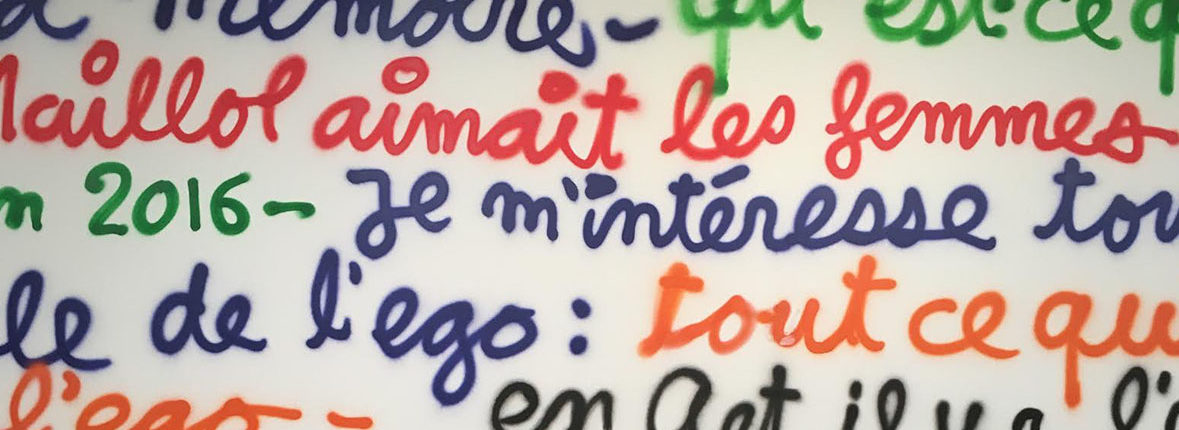 mémoire - qu'est-ce q
aillol aimait les femmes
n 2016 - Je m'intéresse tou
le de l'ego : tout ce qu
l'ego - en Art il y a l'